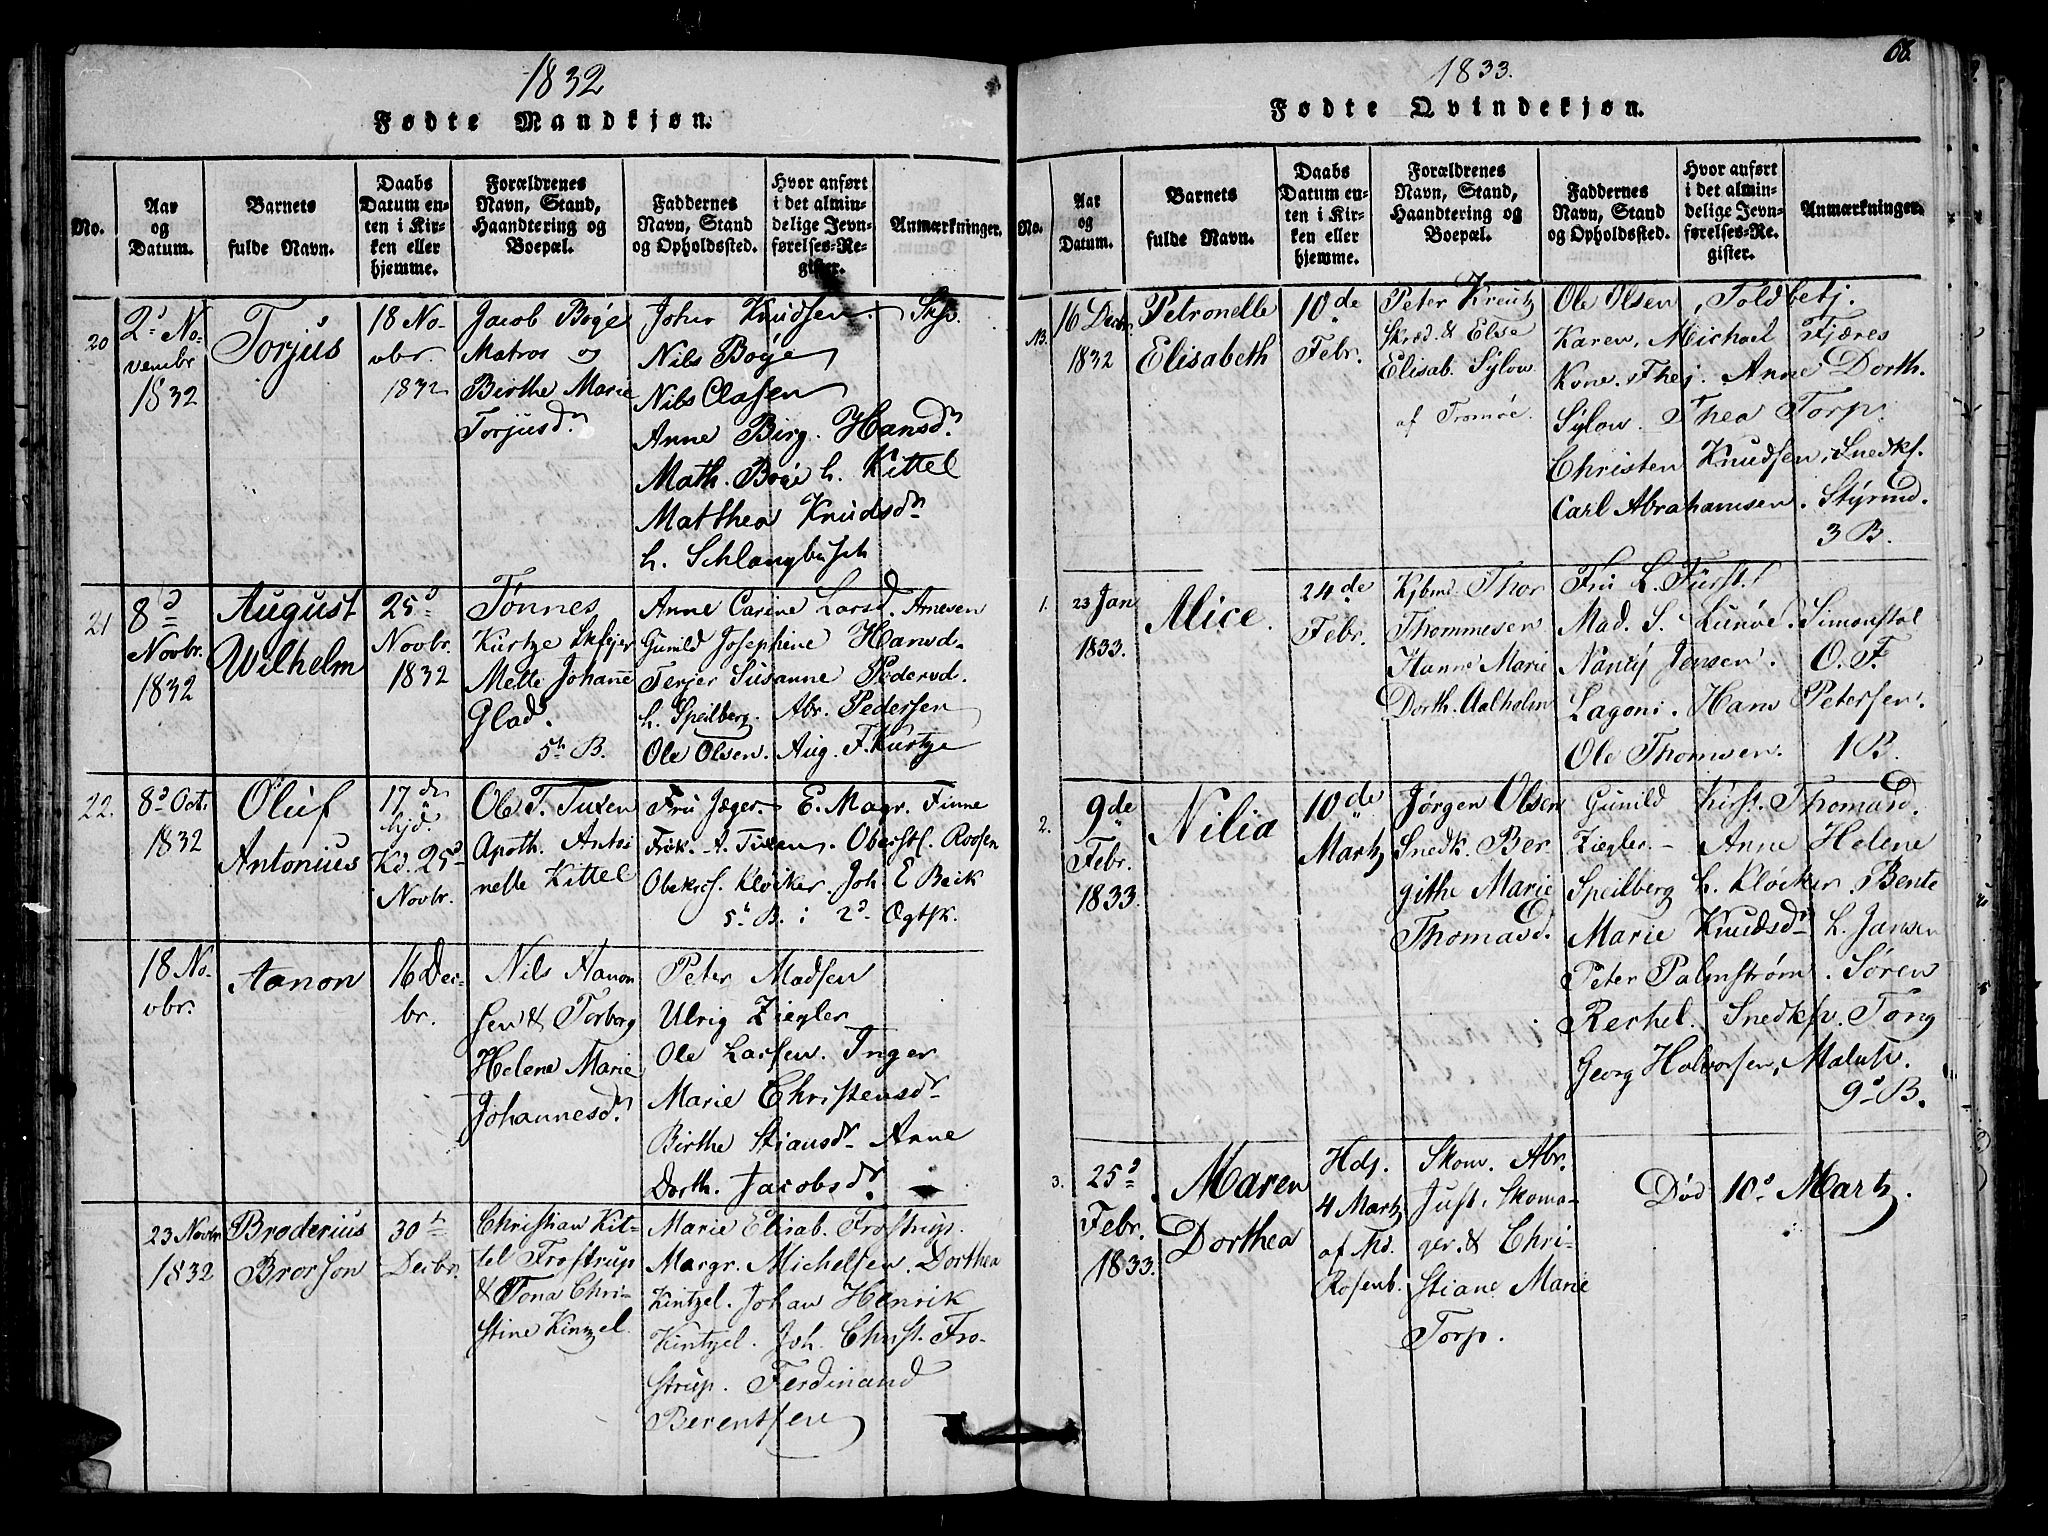 1832
Fødte Mandkjøn.
No.
Aar
og
Datum.
Barnets
fulde Navn.
Daabs
Datum en-
ten i Kir-
ken eller
hjemme.
Forældrenes
Navn, Stand,
Haandtering og
Boepæl.
Faddernes
Navn, Stand
og Opholdssted.
Hvor anført
i det almin-
delige Jevn-
førelses-Re-
gister.
Anmærkninger.
20
2d No-
vembr
1832
Torjus
18 No-
vbr.
1832
Jacob Boye
Matros og
Birthe Marie
Torjusd.
John Knudsen. Sksp.
Nils Boye
Nils Clasen
Anne Birg. Hansd.
Math. Boye h. Kittel
Matthea Knudsd.
h. Schlangbusch
21
8d
Novbr.
1832
August
Wilhelm
25d
Novbr.
1832
Tønnes
Kurtze
Mette Johanne
Glad.
5h B.
Anne Carine Larsd. Anesen
Gunild Josephine Hansd.
Terjer Susanne Pedersd.
h. Speilberg. Abr. Pedersen
Ole Olsen. Aug. F. Kurtze
22.
8d Oct.
1832
Oluf
Antonius
17de
hjd.
Kd. 25d
Novbr.
Ole T. Tuxen
Apoth. Antoi
nette Kittel
Fru Jæger. E. Magr. Finne
Frøk. A. Tuxen. Oberstl. Roosen
Klöcker. Joh. E Beik
5h B. i 2d Ægtsk.
18 No-
vbr.
Aanon
16 Dec-
br.
Nils Aanon
sen & Torborg
Helene Marie
Johannesd.
Peter Madsen
Ulrig Ziegler
Ole Larsen. Inger
Marie Christensdr
Birthe Stiansdr Anne
Dorth. Jacobsdr.
23 Novbr
1832
Broderius
Brorson
30h
Decbr.
Christian Kit-
tel Frostrup
& Tona Chri-
stine Kintzel.
Marie Elisab. Frostrup.
Margr. Michelsen. Dorthea
Kintzel. Johan Henrik
Kintzel. Joh. Christ. Fro-
strup. Ferdinand
Berentsen
1833.
68
Fødte Qvindekjøn.
No.
Aar
og
Datum.
Barnets
fulde Navn.
Daabs
Datum en-
ten i Kir-
ken eller
hjemme.
Forældrenes
Navn, Stand,
Haandtering og
Boepæl.
Faddernes
Navn, Stand
og Opholdssted.
Hvor anført
i det almin-
delige Jevn-
førelses-Re-
gister.
Anmærkninger.
13.
16 Decbr.
1832
Petronelle
Elisabeth
10de
Febr.
Peter Kreutz
Skred. & Elise
Elisab. Sylow
af Tromøe.
Ole Olsen, Toldbetj.
Karen, Michael Fjæres
Kone. Thej. Anne Dorth.
Sylow. Thea Torp.
Christen Knudsen, Snedks.
Carl Abrahamsen. Styrmd.
3 B.
1.
23 Jan
1833.
Alice.
24de
Febr.
Kjbmd. Thor
Thommesen
Hanne Marie
Dorth. Aalholm
Fru L. Fürst.
Mad. S. Lunøe. Simonstøl
Nancy Jensen. O. F.
Lagoni. Hans Petersen.
Ole Thomsen. 1 B.
2.
9de
Febr.
1833.
Nilia
10de
Martz
Jørgen Olsen
Snedk. Ber
githe Marie
Thomasd.
Gunild Kirst. Thomasd.
Ziegler. Anne Helene
Speilberg h. Klöcker. Bente
Marie Knudsd. h. Jansen
Peter Palmstrøm. Søren
Rechel. Snedksv. Tong
Georg Halvorsen, Malusv.
9d B.
3.
25d
Febr.
1833.
Maren
Dorthea
Hdj.
4 Martz
af Md.
Rosenb.
Skom. Abr.
Just. Skoma-
ger. & Chri-
stiane Marie
Torp.
Død 10d Martz.